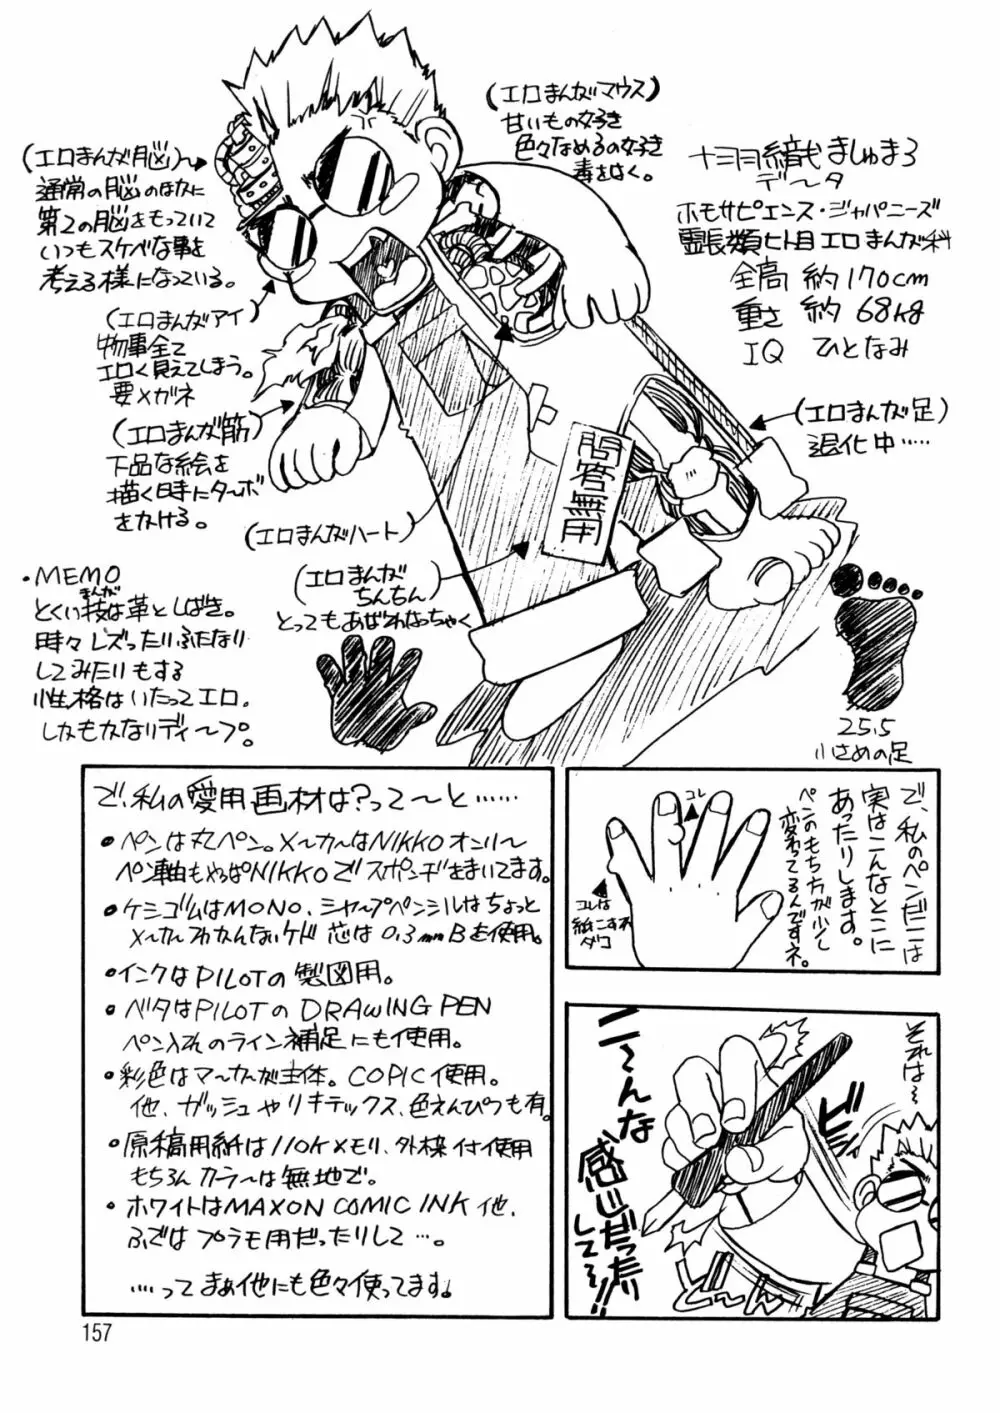 (エロまんがマウス)
甘いもの好き
色々なめるの好き
毒をはく。
ましゅまろ
データ
ホモサピエンス・ジャパニーズ
霊長類ヒト目エロまんが科
全高 約170cm
重さ 約68kg
IQ ひとなみ
(エロまんが脳)
通常の脳のほかに
第2の脳をもっていて
いつもスケベな事を
考える様になっている。
(エロまんがアイ)
物事全て
エロく見えてしまう。
要メガネ
(エロまんが筋)
下品な絵を
描く時にターボ
をかける。
(エロまんがハート)
(エロまんが足)
退化中……
問答無用
(エロまんが
ちんちん)
とってもあばれなっちゃく
・MEMO
まんが
とくい技は革としばき。
時々レズったりふたなり
してみたりもする
性格はいたってエロ。
しかもかなりディープ。
25.5
小さめの足
で、私の愛用画材は?って〜と……
・ペンは丸ペン。メ〜カ〜はNIKKOオンリ〜
ペン軸もやっぱNIKKOでスポンヂをまいてます。
・ケシゴムはMONO、シャ〜プペンシルはちょっと
メ〜カ〜フわかんないケド 芯は0.3mmBを使用。
・インクはPILOTの製図用。
・ベタはPILOTの DRAWING PEN
ペン入れのライン補足にも使用。
・彩色はマ〜カ〜が主体。COPIC使用。
他、ガッシュやリキテックス、色えんぴつも有。
・原稿用紙は110Kメモリ、外枠付使用
もちろんカラ〜は無地で。
・ホワイトはMAXON COMIC INK 他、
ふではプラモ用だったりして…。
……って まぁ他にも色々使ってます。
で、私のペンだこは
実はこんなとこに
あったりします。
ペンのもち方が少し
変わってるんですネ。
コレ
コレは
紙こすれ
ダコ
それは〜
ビシ
に〜んな
感じだったり
してる!!
157